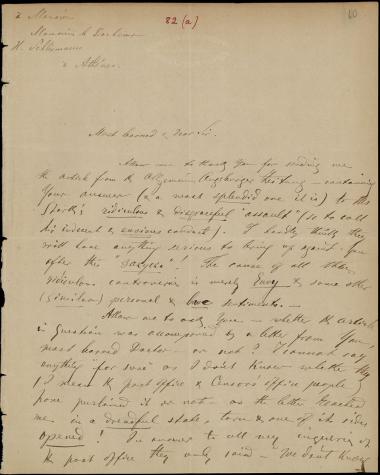 82 (a)
à Monsieur
Monsieur le Docteur
H. Schliemann
à Athènes.
Most learned & dear Sir.
Allow me to thank You for sending me
the article from the Allgemeine Augsburger Zeitung – containing
Your answer (& a most splendid one it is) to the
ridiculous & disgraceful "assault" (so to call
his indecent & envious conduct). I hardly think they
will have anything serious to bring up against You
after this " "! The cause of all these
ridiculous controversies is merely Envy & some other
(similar) personal & low sentiments. –
Allow me to ask You – whether the article
in question was accompanied by a letter from You,
most learned Doctor – or not? I cannot say
anything for sure as I don't know whether the
(I mean the post office & Censors' office people)
have purloined it or not – as the letter reached
me in a dreadful state, torn & one of its sides
opened! In answer to all my inquiries of
the post office they only said – "We don't know